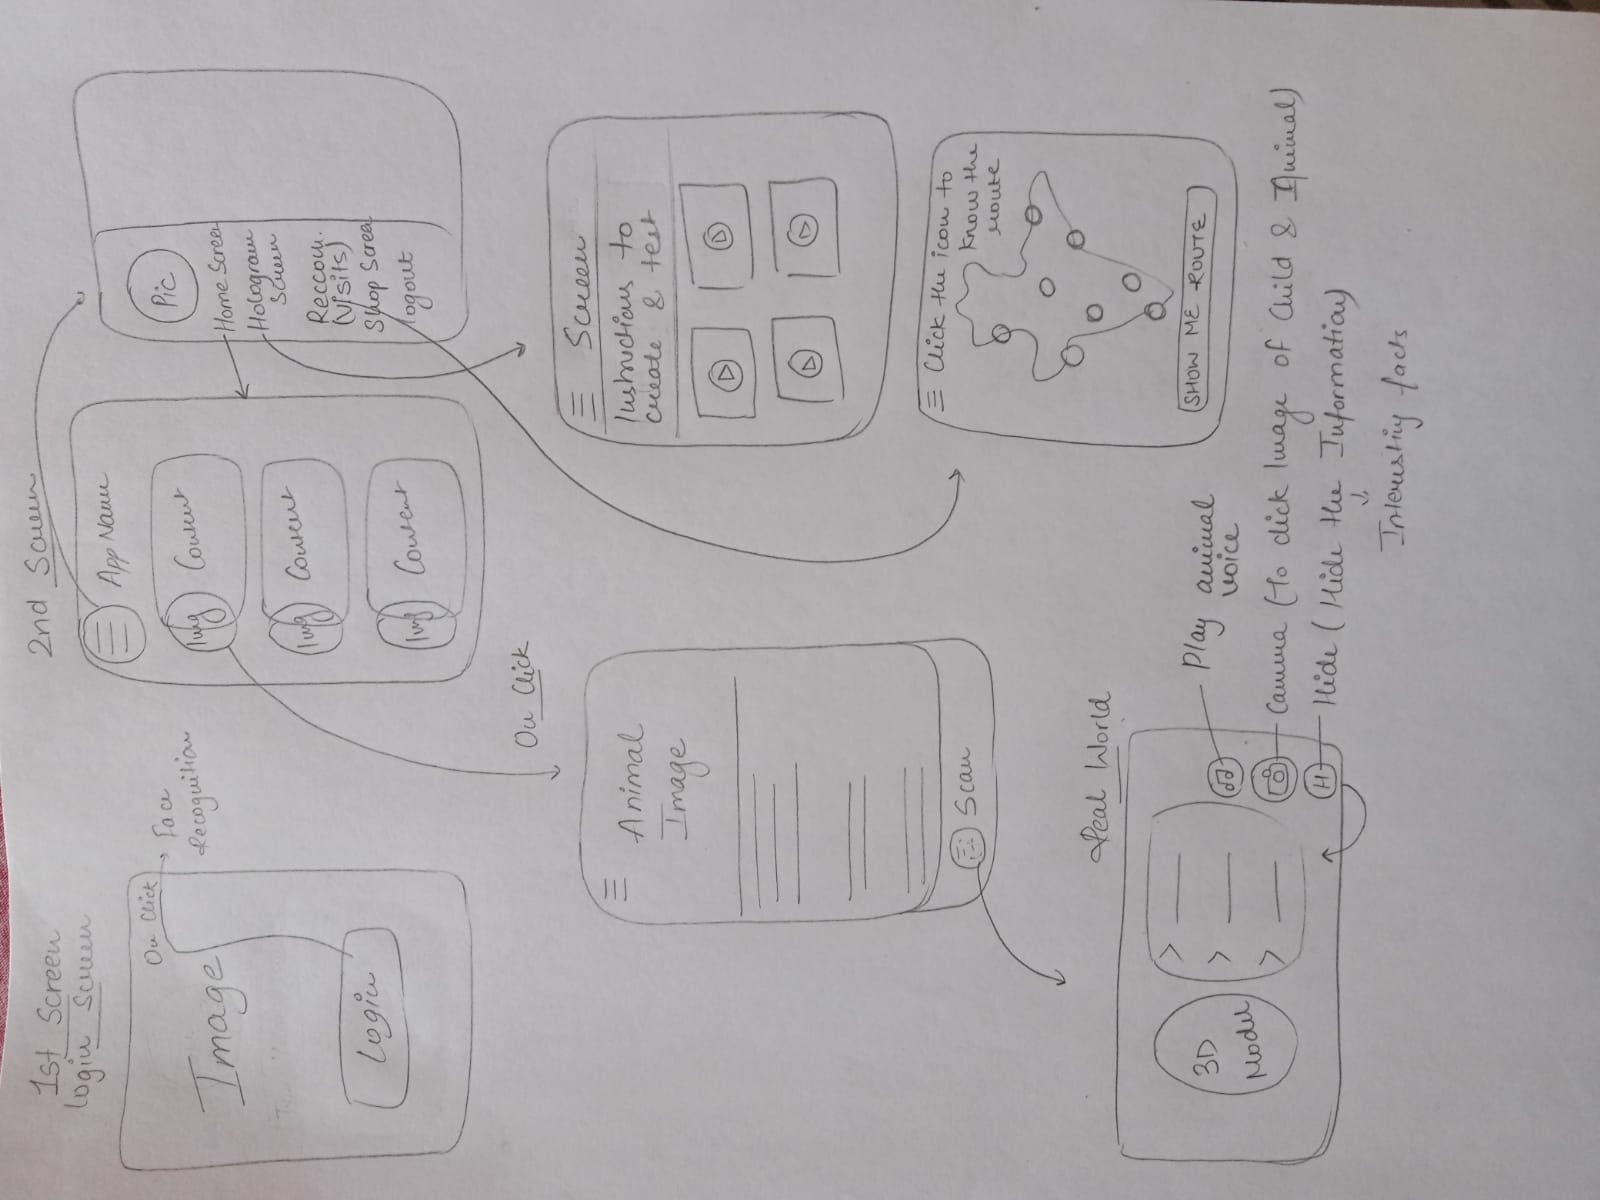 1st Screen
Login Screen
On Click
Face
Recognition
Image
Login
2nd Screen
App Name
Img
Content
Img
Content
Img
Content
Pic
Home Screen
Hologram
Screen
Reccom.
(Visits)
Shop Screen
logout
On Click
Animal
Image
Scan
Screen
Instructions to
create & test
Click the icon to
know the
route
SHOW ME ROUTE
Real World
3D
Model
Play animal
voice
Camera (to click Image of Child & Animal)
H
Hide (Hide the Information)
Interesting facts